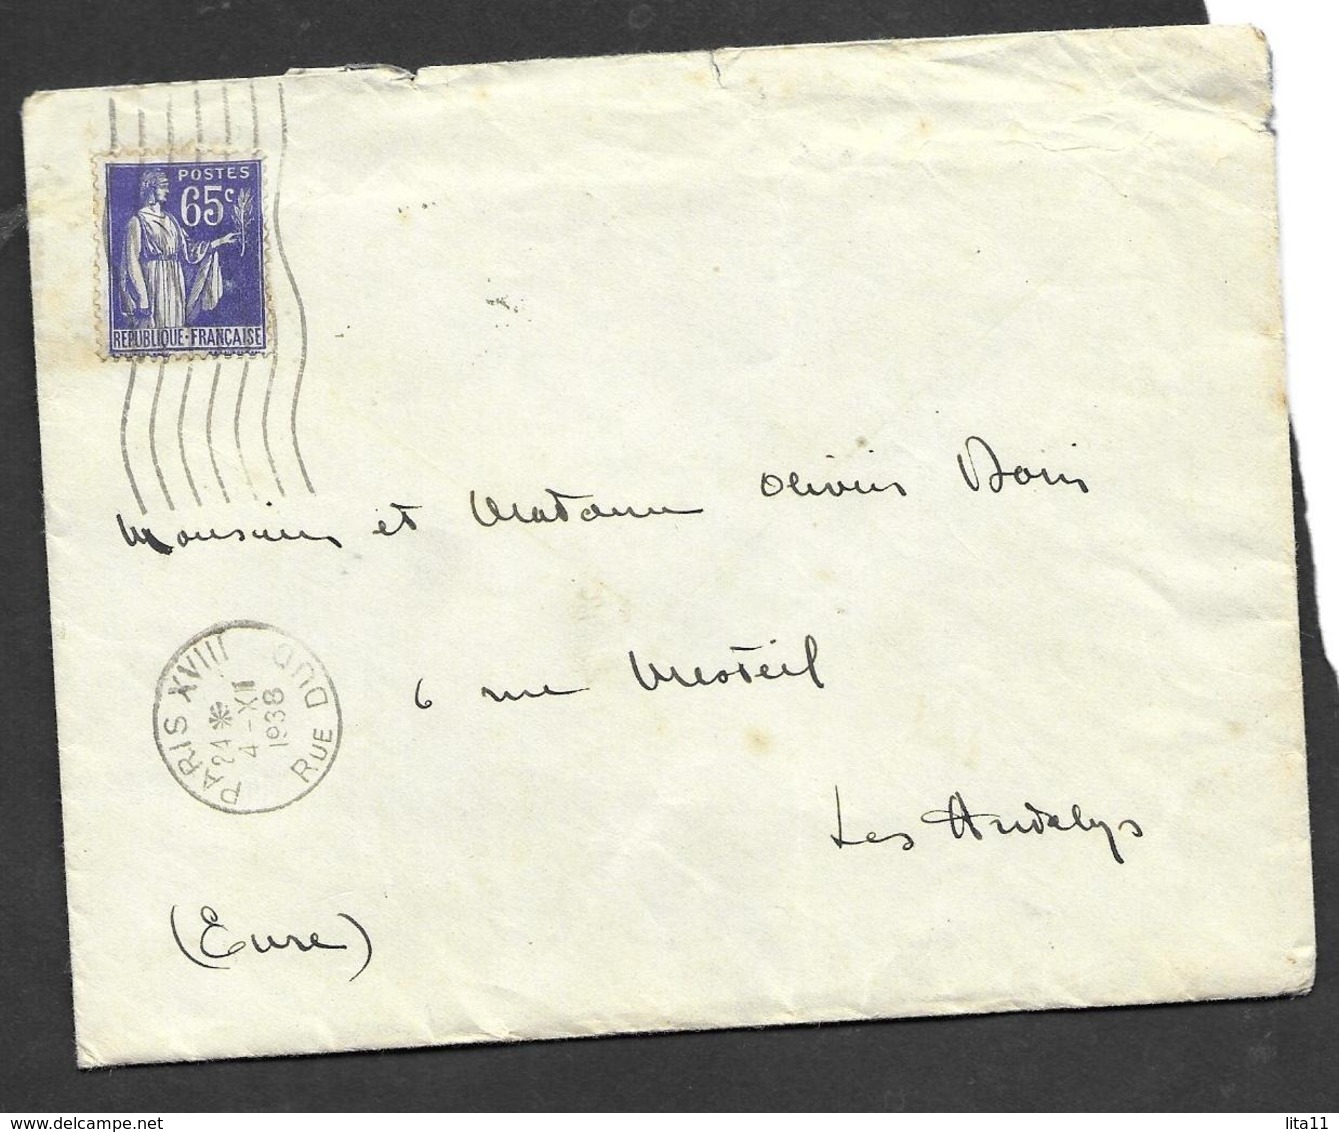 POSTES
65c
REPUBLIQUE-FRANCAISE
Monsieur et Madame Olivier
6 rue
Les Andelys
(Eure)
PARIS XVIII
21 *
4-XII
1938
RUE DUC
www.delcampe.net
lita11